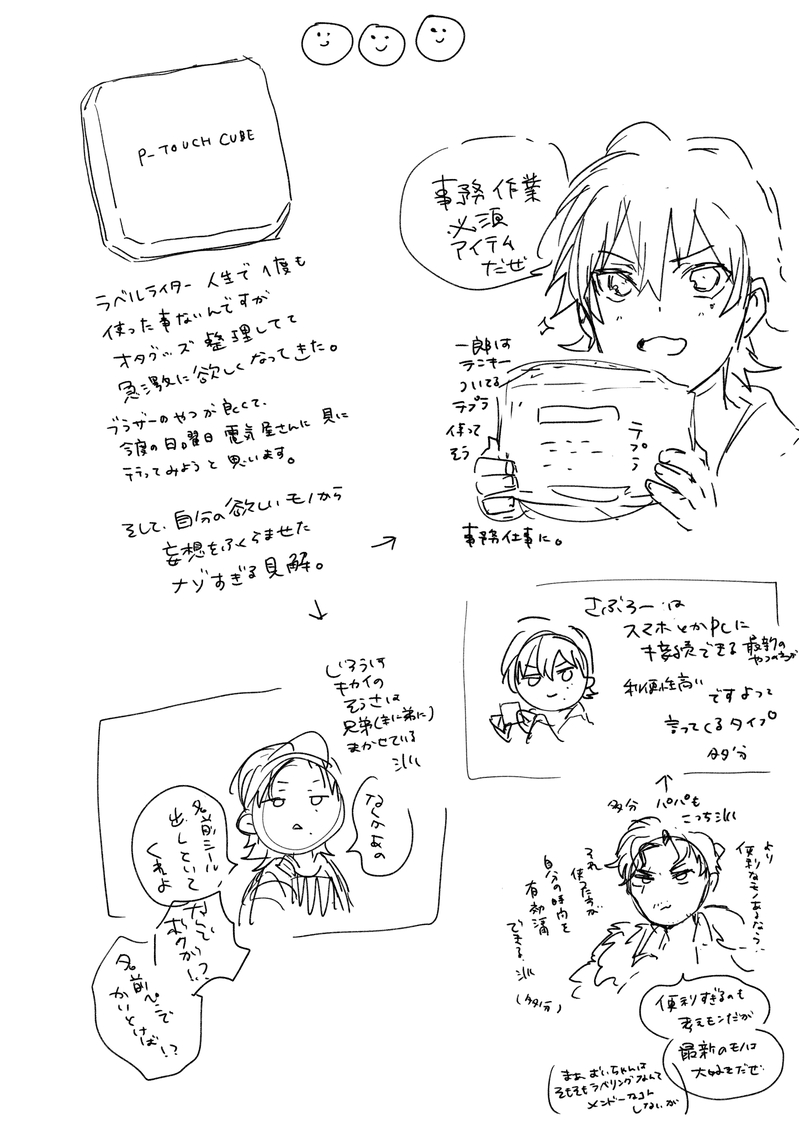 P-TOUCH CUBE
ラベルライター 人生で1度も
使った事ないんですが
オタグッズ 整理してて
急激に欲しくなってきた。
ブラザーのやつが良くて、
今度の日曜日 電気屋さんに 見に
行ってみようと思います。
そして、自分の欲しいモノから
妄想をふくらませた
ナゾすぎる見解。
→
↓
事務作業
必須
アイテム
だぜ
一郎は
テンキー
ついてる
テプラ
使って
そう
テプラ
事務仕事に。
さぶろーは
スマホとかPCに
接続できる 最新の
やつの方が
利便性高い
ですよって
言ってくるタイプ
多分
じろうは
キカイの
そうさは
兄弟(主に弟に)
まかせている
名前シール
出しといて
くれよ
なんで
ボクが
!?
名前ペンで
かいとけば
!?
↑
多分 パパも
こっち
より
便利なモノあるなら、
それ
使った方が
自分の時間を
有効活
できる
(多分)
便利すぎるのも
考えモンだが
最新のモノは
大好きだぜ
(まあ、おいちゃんは
そもそもラベリングなんて
メンドーなコト
しないが